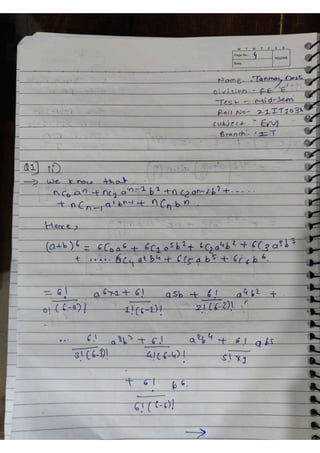 M T W T F S S
Page No.: 1
Date:
YOUVA
Name - Tanmay
Division - FE E
Test - mid-sem
Roll No - 21IT1032
Subject -
Branch - IT
Q1] 1)
→ We know that
nC0 aⁿ + nC1 aⁿ⁻¹ b¹ + nC2 aⁿ⁻² b² + .....
+ nCn-1 a¹ bⁿ⁻¹ + nCn bⁿ
Hence,
(a+b)⁶ = 6C0 a⁶ + 6C1 a⁵b¹ + 6C2 a⁴b² + 6C3 a³b³
+ ..... 6C4 a²b⁴ + 6C5 a b⁵ + 6C6 b⁶.
= 6!/0!(6-0)! a⁶×1 + 6!/1!(6-1)! a⁵b + 6!/2!(6-2)! a⁴b² +
... 6!/3!(6-3)! a³b³ + 6!/4!(6-4)! a²b⁴ + 6!/5!×1 ab⁵
+ 6!/6!(6-6)! b⁶.
→